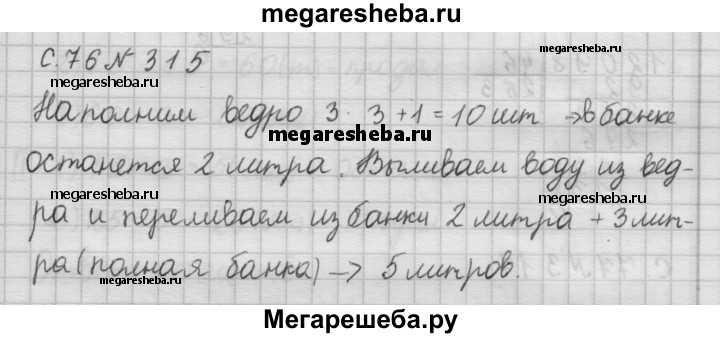 megaresheba.ru
С.76 № 315
megaresheba.ru
megaresheba.ru
Наполним ведро 3 · 3 + 1 = 10 шт → в банке
megaresheba.ru
останется 2 литра. Выливаем воду из вед-
megaresheba.ru
ра и переливаем из банки 2 литра + 3 лит-
ра (полная банка) → 5 литров.
megaresheba.ru
megaresheba.ru
Мегарешеба.ру